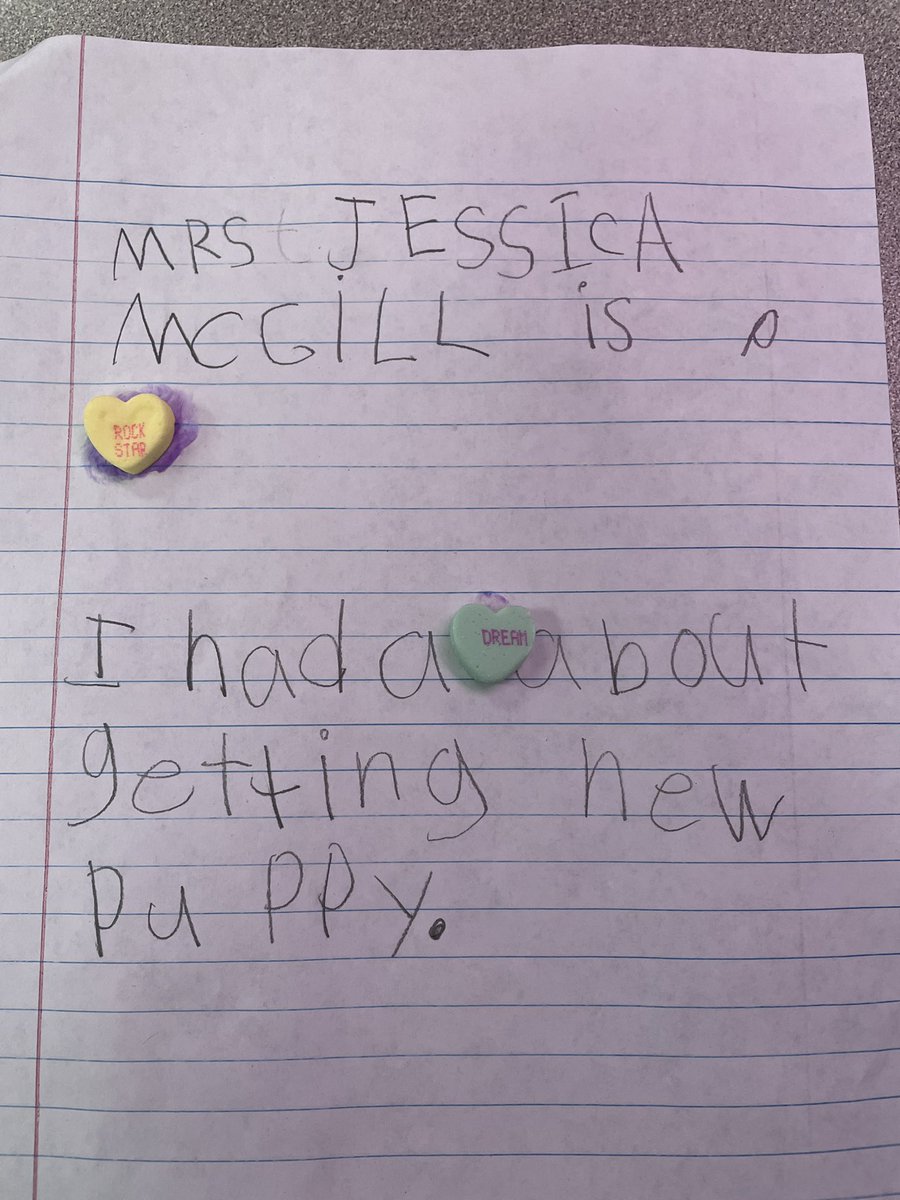 MRS JESSICA
MCGiLL is a
ROCK
STAR
I had a DREAM about
getting new
puppy.